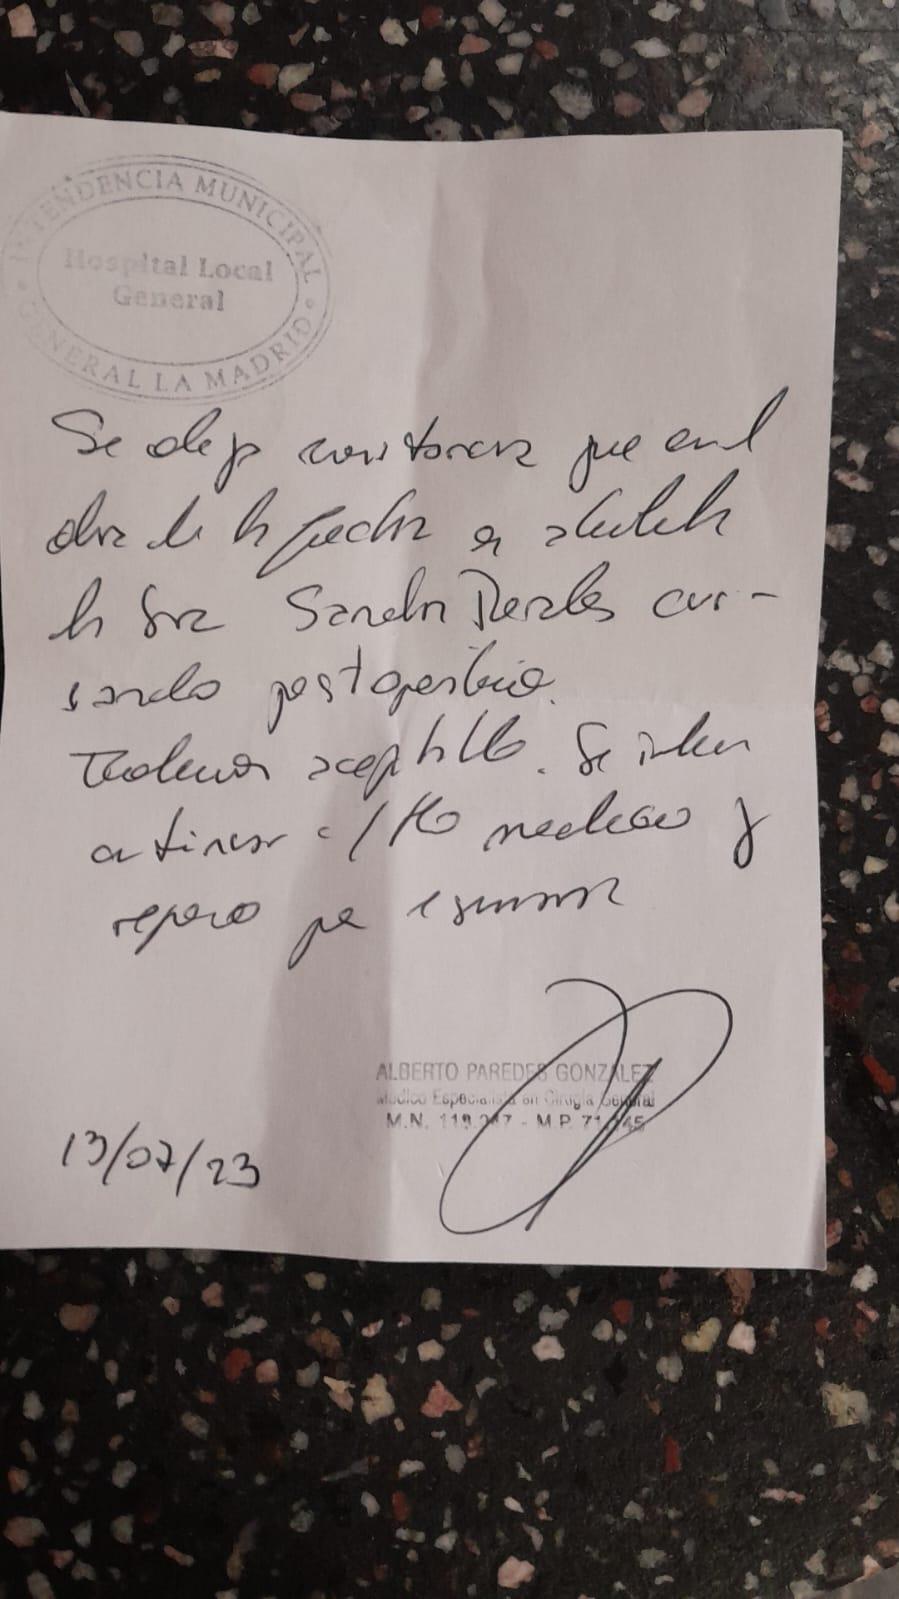 INTENDENCIA MUNICIPAL
Hospital Local
General
GENERAL LA MADRID
Se deja constancia que en el
día de la fecha es
la Sra Sandra cur-
sando postoperatorio.
aceptable. Se
continuar c/ tto médico y
reposo por 1 semana
ALBERTO PAREDES GONZALEZ
Médico Especialista en Cirugía General
M.N. - M.P.
13/07/23